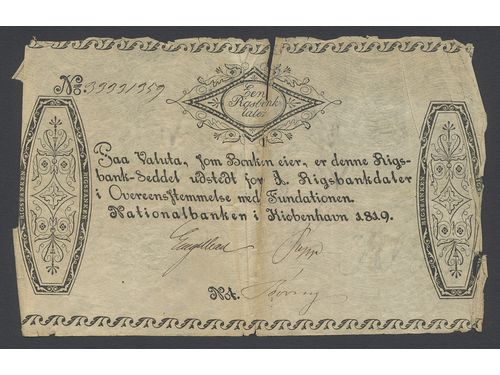 No 39991959
Een
Rigsbank
daler
RIGSBANKEN
Paa Valuta, som Banken eier, er denne Rigs-
bank-Seddel udstedt for 1. Rigsbankdaler
i Overeensstemmelse med Fundationen.
Nationalbanken i Kiobenhavn 1819.
Not.